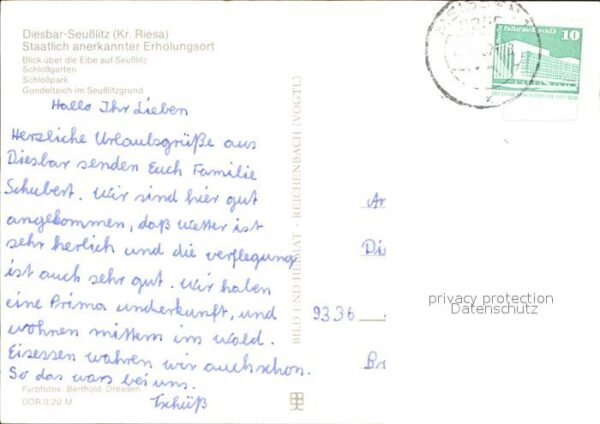 Diesbar-Seußlitz (Kr. Riesa)
Staatlich anerkannter Erholungsort
Blick über die Elbe auf Seußlitz
Schloßgarten
Schloßpark
Gondelteich im Seußlitzgrund
Hallo Ihr Lieben
Herzliche Urlaubsgrüße aus
Diesbar senden Euch Familie
Schubert. Wir sind hier gut
angekommen, daß Wetter ist
sehr herlich und die verflegung
ist auch sehr gut. Wir haben
eine Prima underkunft, und
wohnen mittem im Wald.
Eisessen wahren wir auch schon.
So das wars bei uns.
Tschüß
Farbfotos: Berthold, Dresden
DDR 0,20 M
BILD UND HEIMAT · REICHENBACH (VOGTL)
Palast der Republik
10
An
Di
9336
Br
privacy protection
Datenschutz